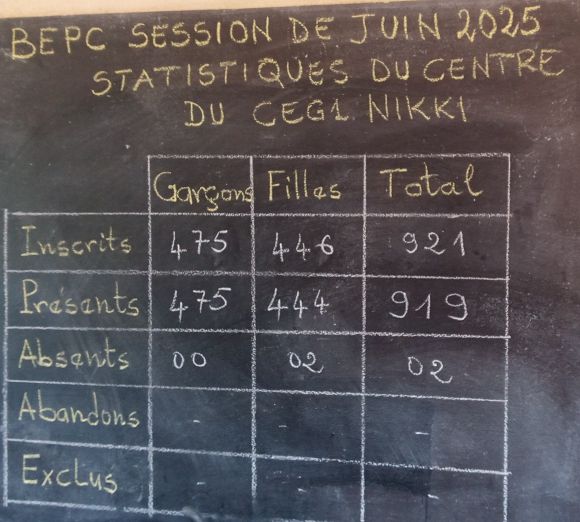 BEPC SESSION DE JUIN 2025
STATISTIQUES DU CENTRE
DU CEG1 NIKKI
Garçons Filles Total
Inscrits 475 446 921
Présents 475 444 919
Absents 00 02 02
Abandons - - -
Exclus - - -